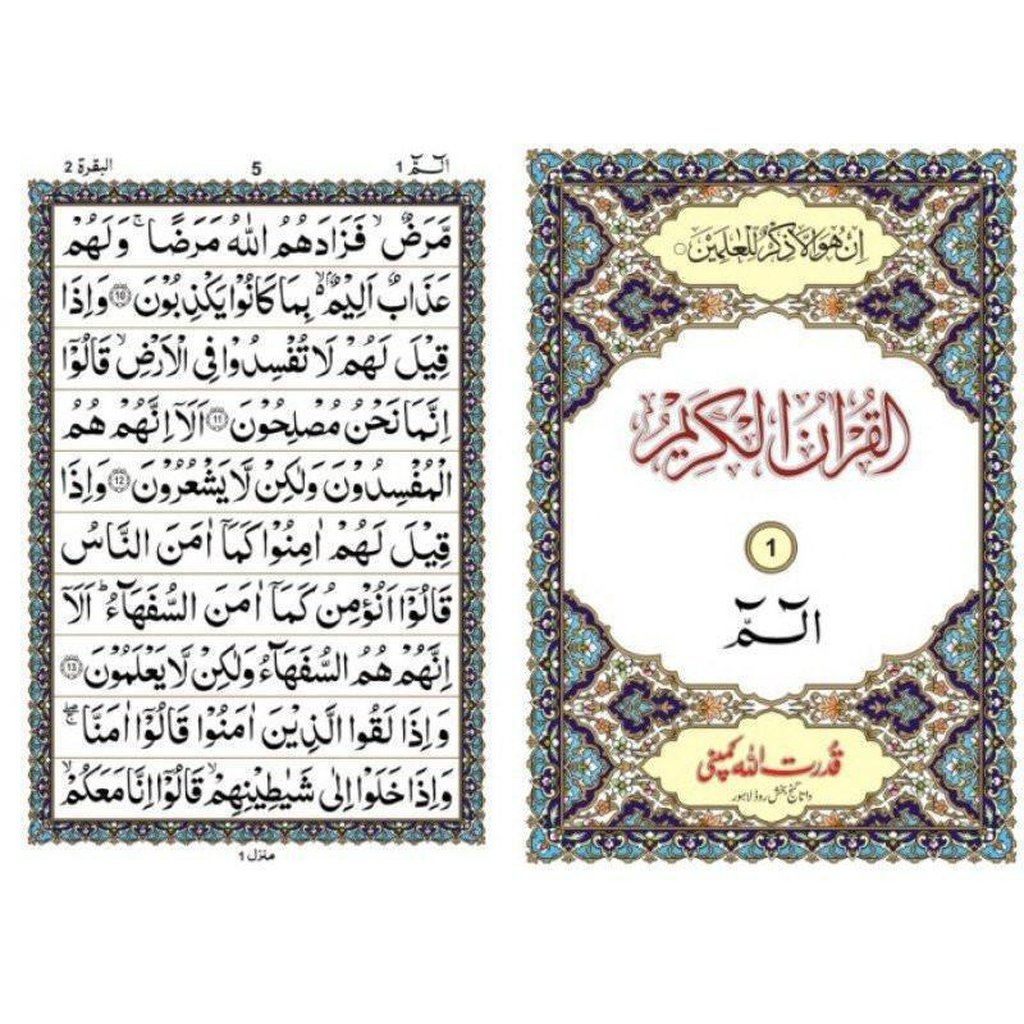 الٓمّٓ 1
5
البقرة 2
مَّرَضٌ ۙ فَزَادَهُمُ اللّٰهُ مَرَضًا ۚ وَلَهُمْ
عَذَابٌ اَلِيْمٌ ۬ۙ بِمَا كَانُوْا يَكْذِبُوْنَ ۝10 وَاِذَا
قِيْلَ لَهُمْ لَا تُفْسِدُوْا فِى الْاَرْضِ ۙ قَالُوْٓا
اِنَّمَا نَحْنُ مُصْلِحُوْنَ ۝11 اَلَآ اِنَّهُمْ هُمُ
الْمُفْسِدُوْنَ وَلٰكِنْ لَّا يَشْعُرُوْنَ ۝12 وَاِذَا
قِيْلَ لَهُمْ اٰمِنُوْا كَمَآ اٰمَنَ النَّاسُ
قَالُوْٓا اَنُؤْمِنُ كَمَآ اٰمَنَ السُّفَهَآءُ ؕ اَلَآ
اِنَّهُمْ هُمُ السُّفَهَآءُ وَلٰكِنْ لَّا يَعْلَمُوْنَ ۝13
وَاِذَا لَقُوا الَّذِيْنَ اٰمَنُوْا قَالُوْٓا اٰمَنَّا ۖۚ
وَاِذَا خَلَوْا اِلٰى شَيٰطِيْنِهِمْ ۙ قَالُوْٓا اِنَّا مَعَكُمْ ۙ
منزل 1
اِنْ هُوَ اِلَّا ذِكْرٌ لِّلْعٰلَمِيْنَ ۝
القُرْاٰنُ الْكَرِيْمُ
1
الٓمّٓ
قُدرت اللہ کمپنی
داتا گنج بخش روڈ لاہور